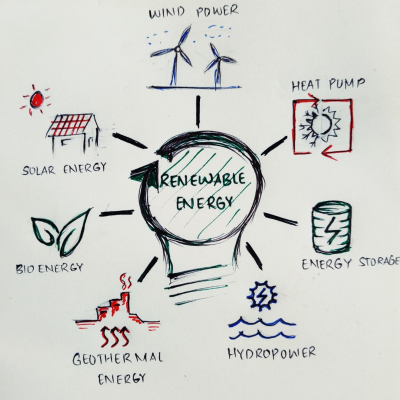 WIND POWER
HEAT PUMP
SOLAR ENERGY
RENEWABLE
ENERGY
BIO ENERGY
ENERGY STORAGE
GEOTHERMAL
ENERGY
HYDROPOWER